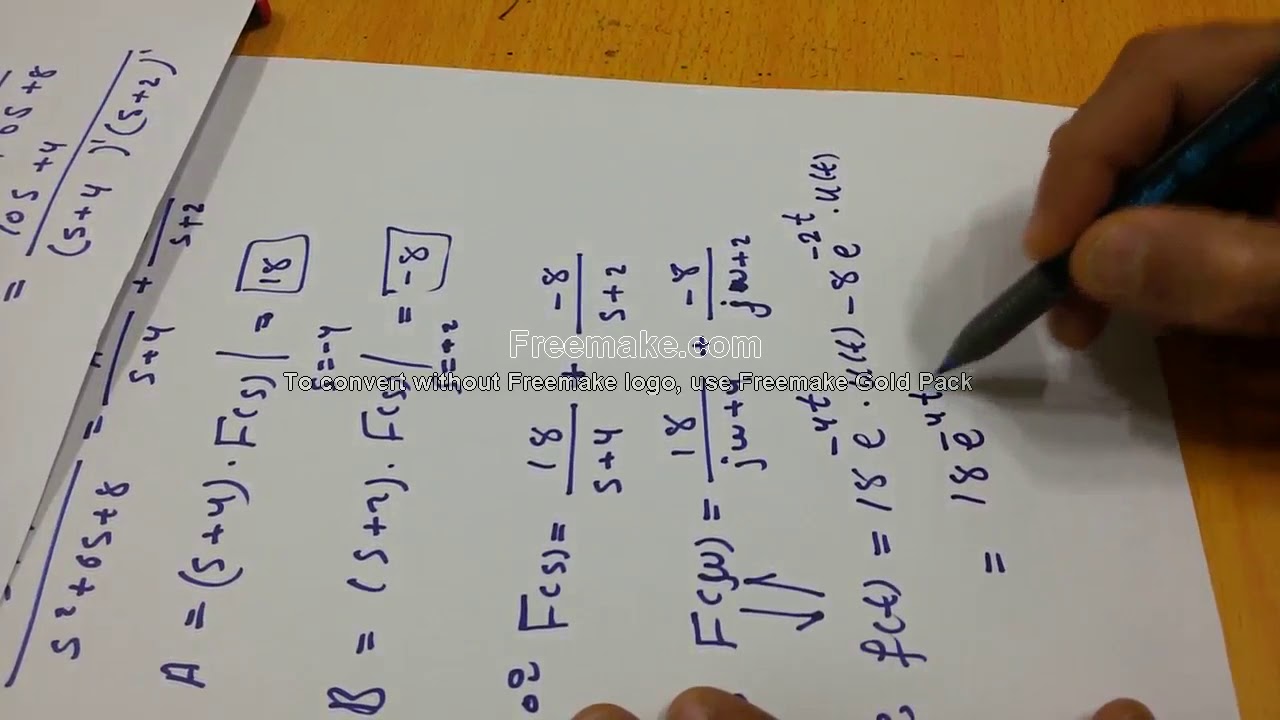 10s+4
= ―――――
(s+4)'(s+2)'
s²+6s+8
= ――― + ―――
s+4 s+2
A = (s+4). F(s)| = 18
s=-4
B = (s+2). F(s)| = -8
s=-2
F(s) = 18/s+4 + -8/s+2
F(jw) = 18/jw+4 + -8/jw+2
f(t) = 18 e^-4t . u(t) - 8 e^-2t . u(t)
= 18 e^-4t
Freemake.com
To convert without Freemake logo, use Freemake Gold Pack